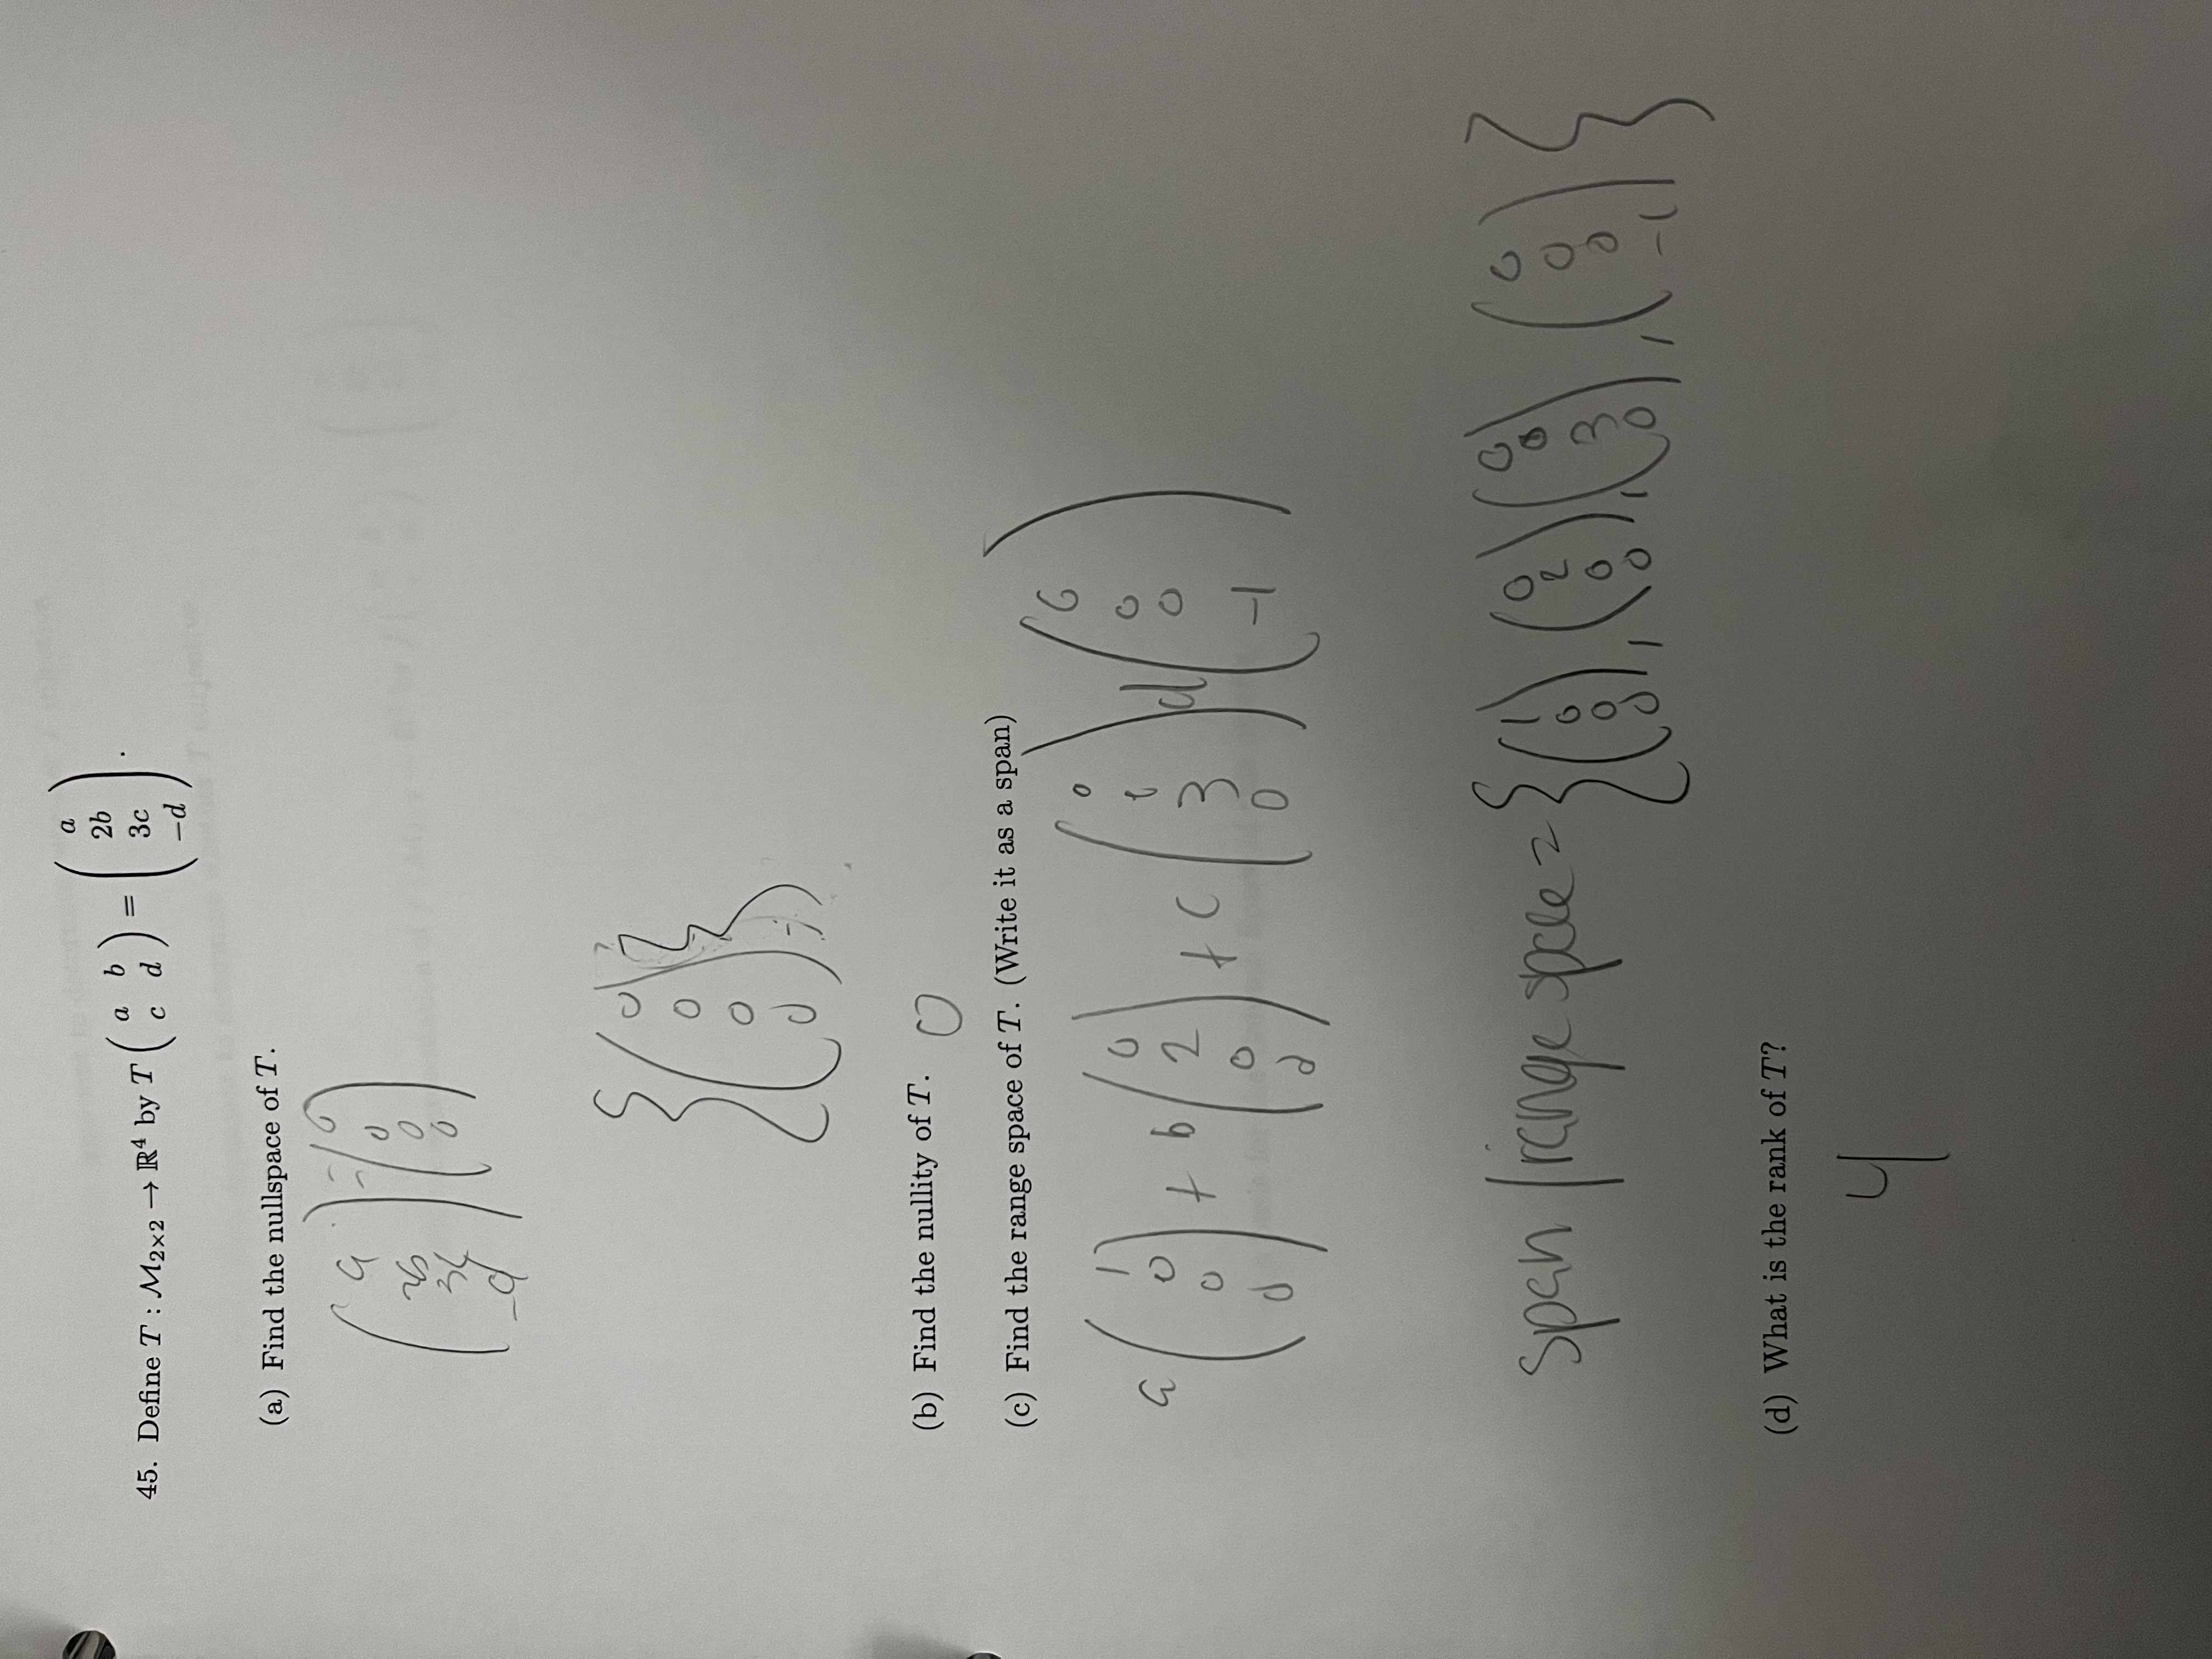 45. Define T : M₂ₓ₂ → ℝ⁴ by T ( a b ; c d ) = ( a ; 2b ; 3c ; −d ) .
(a) Find the nullspace of T.
( a ; 2b ; 3c ; −d ) = ( 0 ; 0 ; 0 ; 0 )
{ ( 0 ; 0 ; 0 ; 0 ) }
(b) Find the nullity of T. 0
(c) Find the range space of T. (Write it as a span)
a ( 1 ; 0 ; 0 ; 0 ) + b ( 0 ; 2 ; 0 ; 0 ) + c ( 0 ; 0 ; 3 ; 0 ) d ( 0 ; 0 ; 0 ; −1 )
span / range space = { ( 1 ; 0 ; 0 ; 0 ) , ( 0 ; 2 ; 0 ; 0 ) , ( 0 ; 0 ; 3 ; 0 ) , ( 0 ; 0 ; 0 ; −1 ) }
(d) What is the rank of T?
4